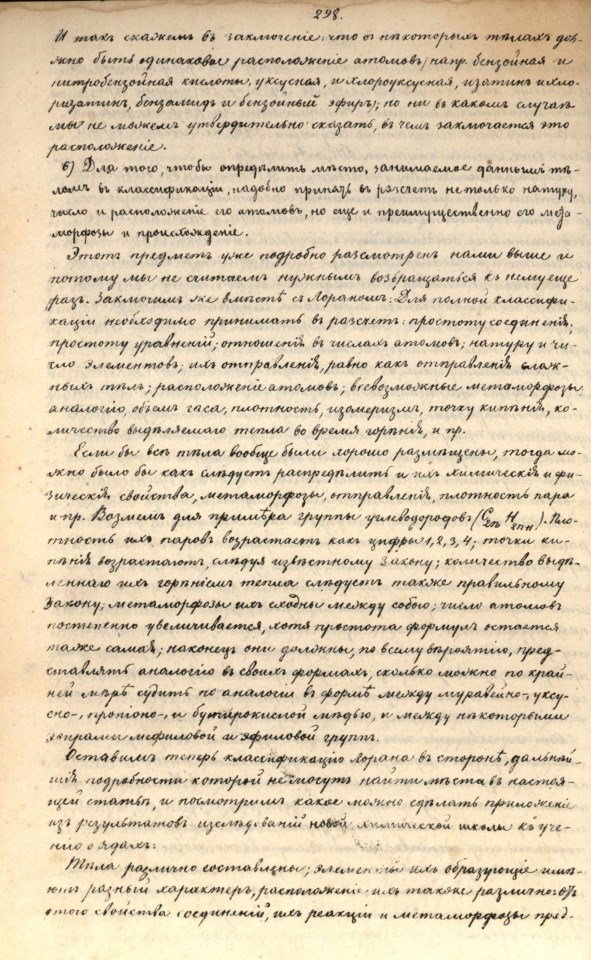 298.
И такъ скажемъ въ заключеніе, что въ нѣкоторыхъ тѣлахъ дол-
жно быть одинаковое расположеніе атомовъ, напр. бензойная и
нитробензойная кислоты, уксусная, и хлороуксусная, изатинъ и хло-
ризатинъ, бензамидъ и бензойный эфиръ; но ни въ какомъ случаѣ
мы не можемъ утвердительно сказать, въ чемъ заключается это
расположеніе.
6) Для того, чтобы опредѣлить мѣсто, занимаемое даннымъ тѣ-
ломъ въ классификаціи, надобно принять въ разсчетъ не только натуру,
число и расположеніе его атомовъ, но еще и преимущественно его мета-
морфозы и происхожденіе.
Этотъ предметъ уже подробно разсмотренъ нами выше и
потому мы не считаемъ нужнымъ возвращаться къ нему еще
разъ. Заключимъ же вмѣстѣ съ Лораномъ: Для полной классифи-
каціи необходимо принимать въ разсчетъ: простоту соединенія,
простоту уравненій; отношенія въ числахъ атомовъ; натуру и чи-
сло элементовъ; ихъ отправленія, равно какъ отправленія слож-
ныхъ тѣлъ; расположеніе атомовъ; всевозможные метаморфозы
аналогію, объемъ газа, плотность, изомеризмъ, точку кипѣнія, ко-
личество выдѣляемаго тепла во время горѣнія, и пр.
Если бы всѣ тѣла вообще были хорошо размѣщены, тогда мо-
жно было бы какъ слѣдуетъ распредѣлить и ихъ химическія и фи-
зическія свойства, метаморфозы, отправленія, плотность пара
и пр. Возмемъ для примѣра группы углеводородовъ (C2n H2n+n). Пло-
тность ихъ паровъ возрастаетъ какъ цифры 1, 2, 3, 4; точки ки-
пѣнія возрастаютъ, слѣдуя извѣстному закону; количество выдѣ-
леннаго ихъ горѣніемъ тепла слѣдуетъ также правильному
закону; метаморфозы ихъ сходны между собою; число атомовъ
постепенно увеличивается, хотя простота формулъ остается
таже самая; наконецъ они должны, по всему вѣроятію, пред-
ставлять аналогію въ своихъ формахъ, сколько можно по край-
ней мѣрѣ судить по аналогіи въ формѣ между муравейно-, уксу-
сно-, пропіоно-, и бутирокислой мѣдью, и между нѣкоторыми
эѳирами меѳиловой и эѳиловой группъ.
Оставимъ теперь классификацію Лорана въ сторонѣ, дальнѣй-
шія подробности которой не могутъ найти мѣста въ настоя-
щей статьѣ, и посмотримъ какое можно сдѣлать приложеніе
изъ результатовъ изслѣдованій новой химической школы къ уче-
нію о ядахъ:
Тѣла различно составлены; элементы ихъ образующіе имѣ-
ютъ разный характеръ, расположеніе ихъ также различно: отъ
этого свойства соединеній, ихъ реакціи и метаморфозы пред-